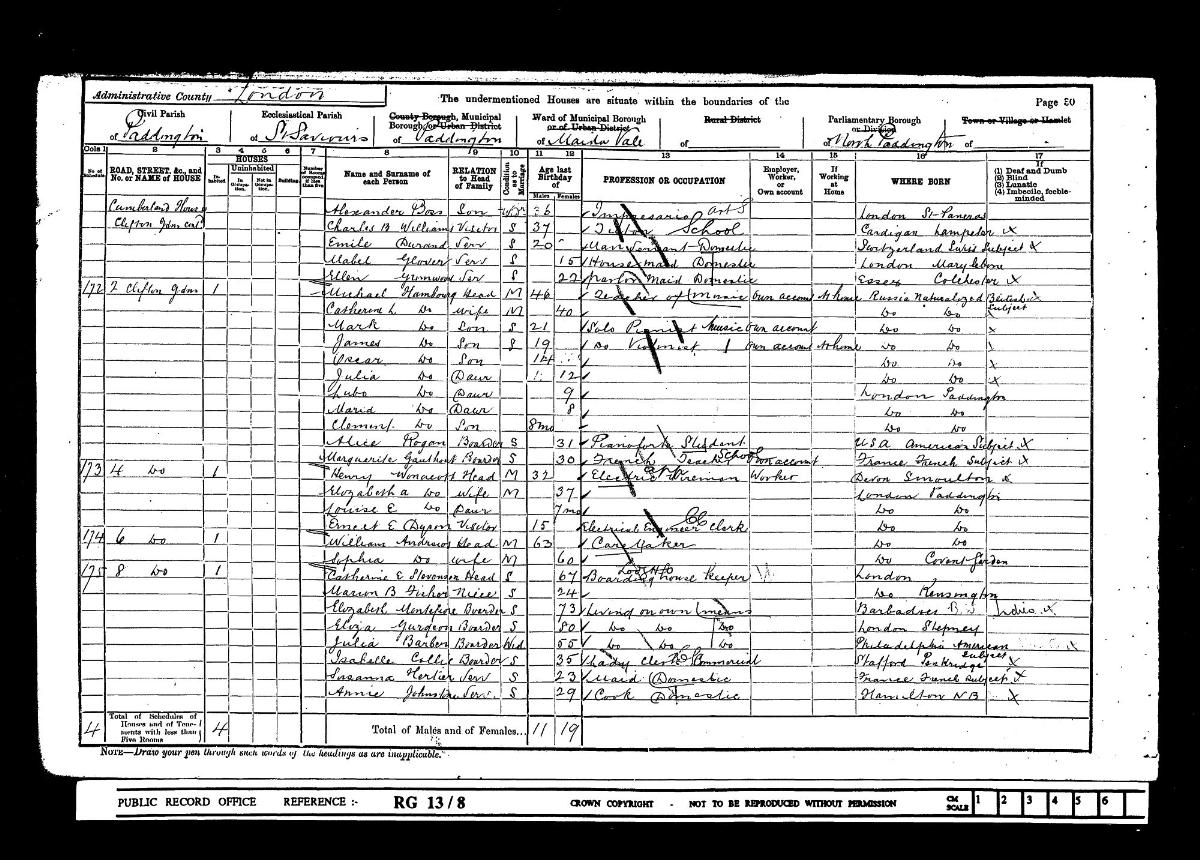 Administrative County London
The undermentioned Houses are situate within the boundaries of the
Page 30
Civil Parish of Paddington
Ecclesiastical Parish of St Saviours
County Borough, Municipal Borough, or Urban District of Paddington
Ward of Municipal Borough or of Urban District of Maida Vale
Rural District of
Parliamentary Borough or Division of North Paddington
Town or Village or Hamlet of
Cols 1 2 3 4 5 6 7 8 9 10 11 12 13 14 15 16 17
No. of Schedule ROAD, STREET, &c., and No. or NAME of HOUSE HOUSES Inhabited Uninhabited In Occupation. Not in Occupation. Building Number of Rooms occupied if less than five Name and Surname of each Person RELATION to Head of Family Condition as to Marriage Age last Birthday of Males Females PROFESSION OR OCCUPATION Employer, Worker, or Own account If Working at Home WHERE BORN If (1) Deaf and Dumb (2) Blind (3) Lunatic (4) Imbecile, feeble-minded
Cumberland House Alexander Son 36 Impresario Art S London St Pancras
Clifton Gdns Charles B Williams Visitor S 37 School Cardigan Lampeter X
Emile Durand Serv S 20 Man Servant Domestic Switzerland Swiss Subject X
Mabel Glover Serv S 15 Housemaid Domestic London Marylebone
Ellen Serv S 22 Parlor Maid Domestic Essex Colchester X
172 2 Clifton Gdns 1 Michael Hambourg Head M 46 Teacher of Music Own account At home Russia Naturalized British Subject X
Catherine L Do Wife M 40 Do Do
Mark Do Son S 21 Solo Pianist Music Own account Do Do X
James Do Son S 19 Do Violinist Own account At home Do Do X
Oscar Do Son 14 Do Do X
Julia Do Daur 12 Do Do X
Lubo Do Daur 9 London Paddington
Do Daur 8 Do Do
Clement Do Son 8 mo Do Do
Alice Rogan Boarder S 31 Pianoforte Student USA American Subject X
Marguerite Boarder S 30 French Teacher School Own account France French Subject X
173 4 Do 1 Henry Wonacott Head M 32 Electric Wireman Worker Devon X
Elizabeth A Do Wife M 37 London Paddington
Louise E Do Daur 7 mo Do Do
Ernest E Dyson Visitor 15 Electrical Engineer Clerk Do Do
174 6 Do 1 William Andrews Head M 63 Care Taker Do Do
Sophia Do Wife M 60 Do Covent Garden
175 8 Do 1 Catherine E Head S 67 Boarding house Keeper London
Marion B Fisher Niece S 24 Do Kensington
Elizabeth Montefiore Boarder S 73 Living on own means Barbadoes Indies X
Eliza Boarder S 80 Do Do Do London Stepney
Julia Barber Boarder Wid 55 Do Do Do Philadelphia American Subject X
Isabella Boarder S 35 Lady Clerk Commercial Stafford Penkridge X
Susanna Serv S 23 Maid Domestic France French Subject X
Annie Johnston Serv S 29 Cook Domestic Hamilton NB X
4 Total of Schedules of Houses and of Tenements with less than Five Rooms 4 Total of Males and of Females... 11 19
NOTE—Draw your pen through such words of the headings as are inapplicable.
PUBLIC RECORD OFFICE REFERENCE :- RG 13/8 CROWN COPYRIGHT - NOT TO BE REPRODUCED WITHOUT PERMISSION CM SCALE 1 2 3 4 5 6